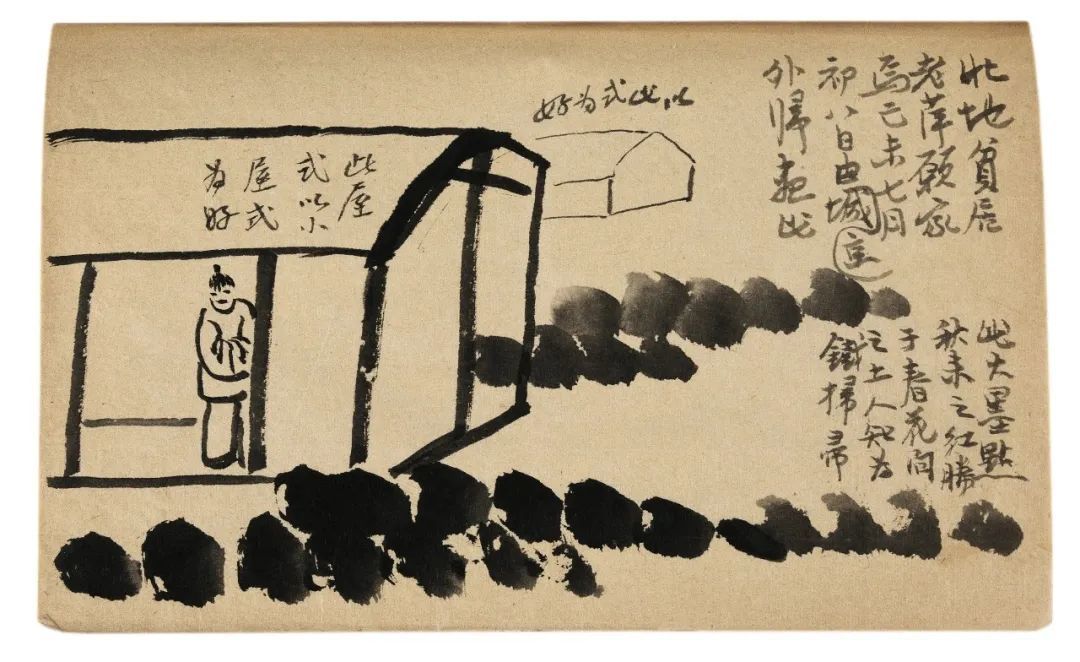 此地貧居
老萍願家
焉己未七月
初八日由城
外歸畫此
以此式為好
此屋
式以小
屋式
為好
此大墨點
秋來之紅勝
于春花問
之土人知為
鐵掃帚